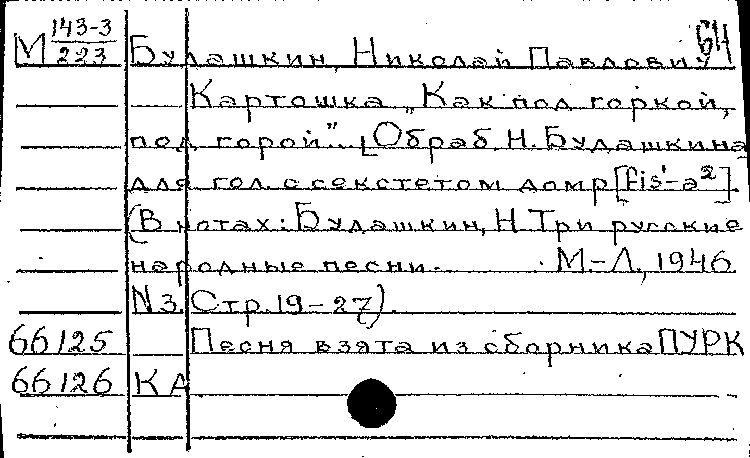 М 143-3/223 Будашкин, Николай Павлович БН
Картошка „Как под горкой,
под горой". [Обраб. Н. Будашкина
для гол. с секстетом домр [fis¹-a²].
(В нотах: Будашкин, Н. Три русские
народные песни. М.-Л., 1946
N 3. Стр. 19-27).
66125 Песня взята из сборника ПУРК
66126 КА